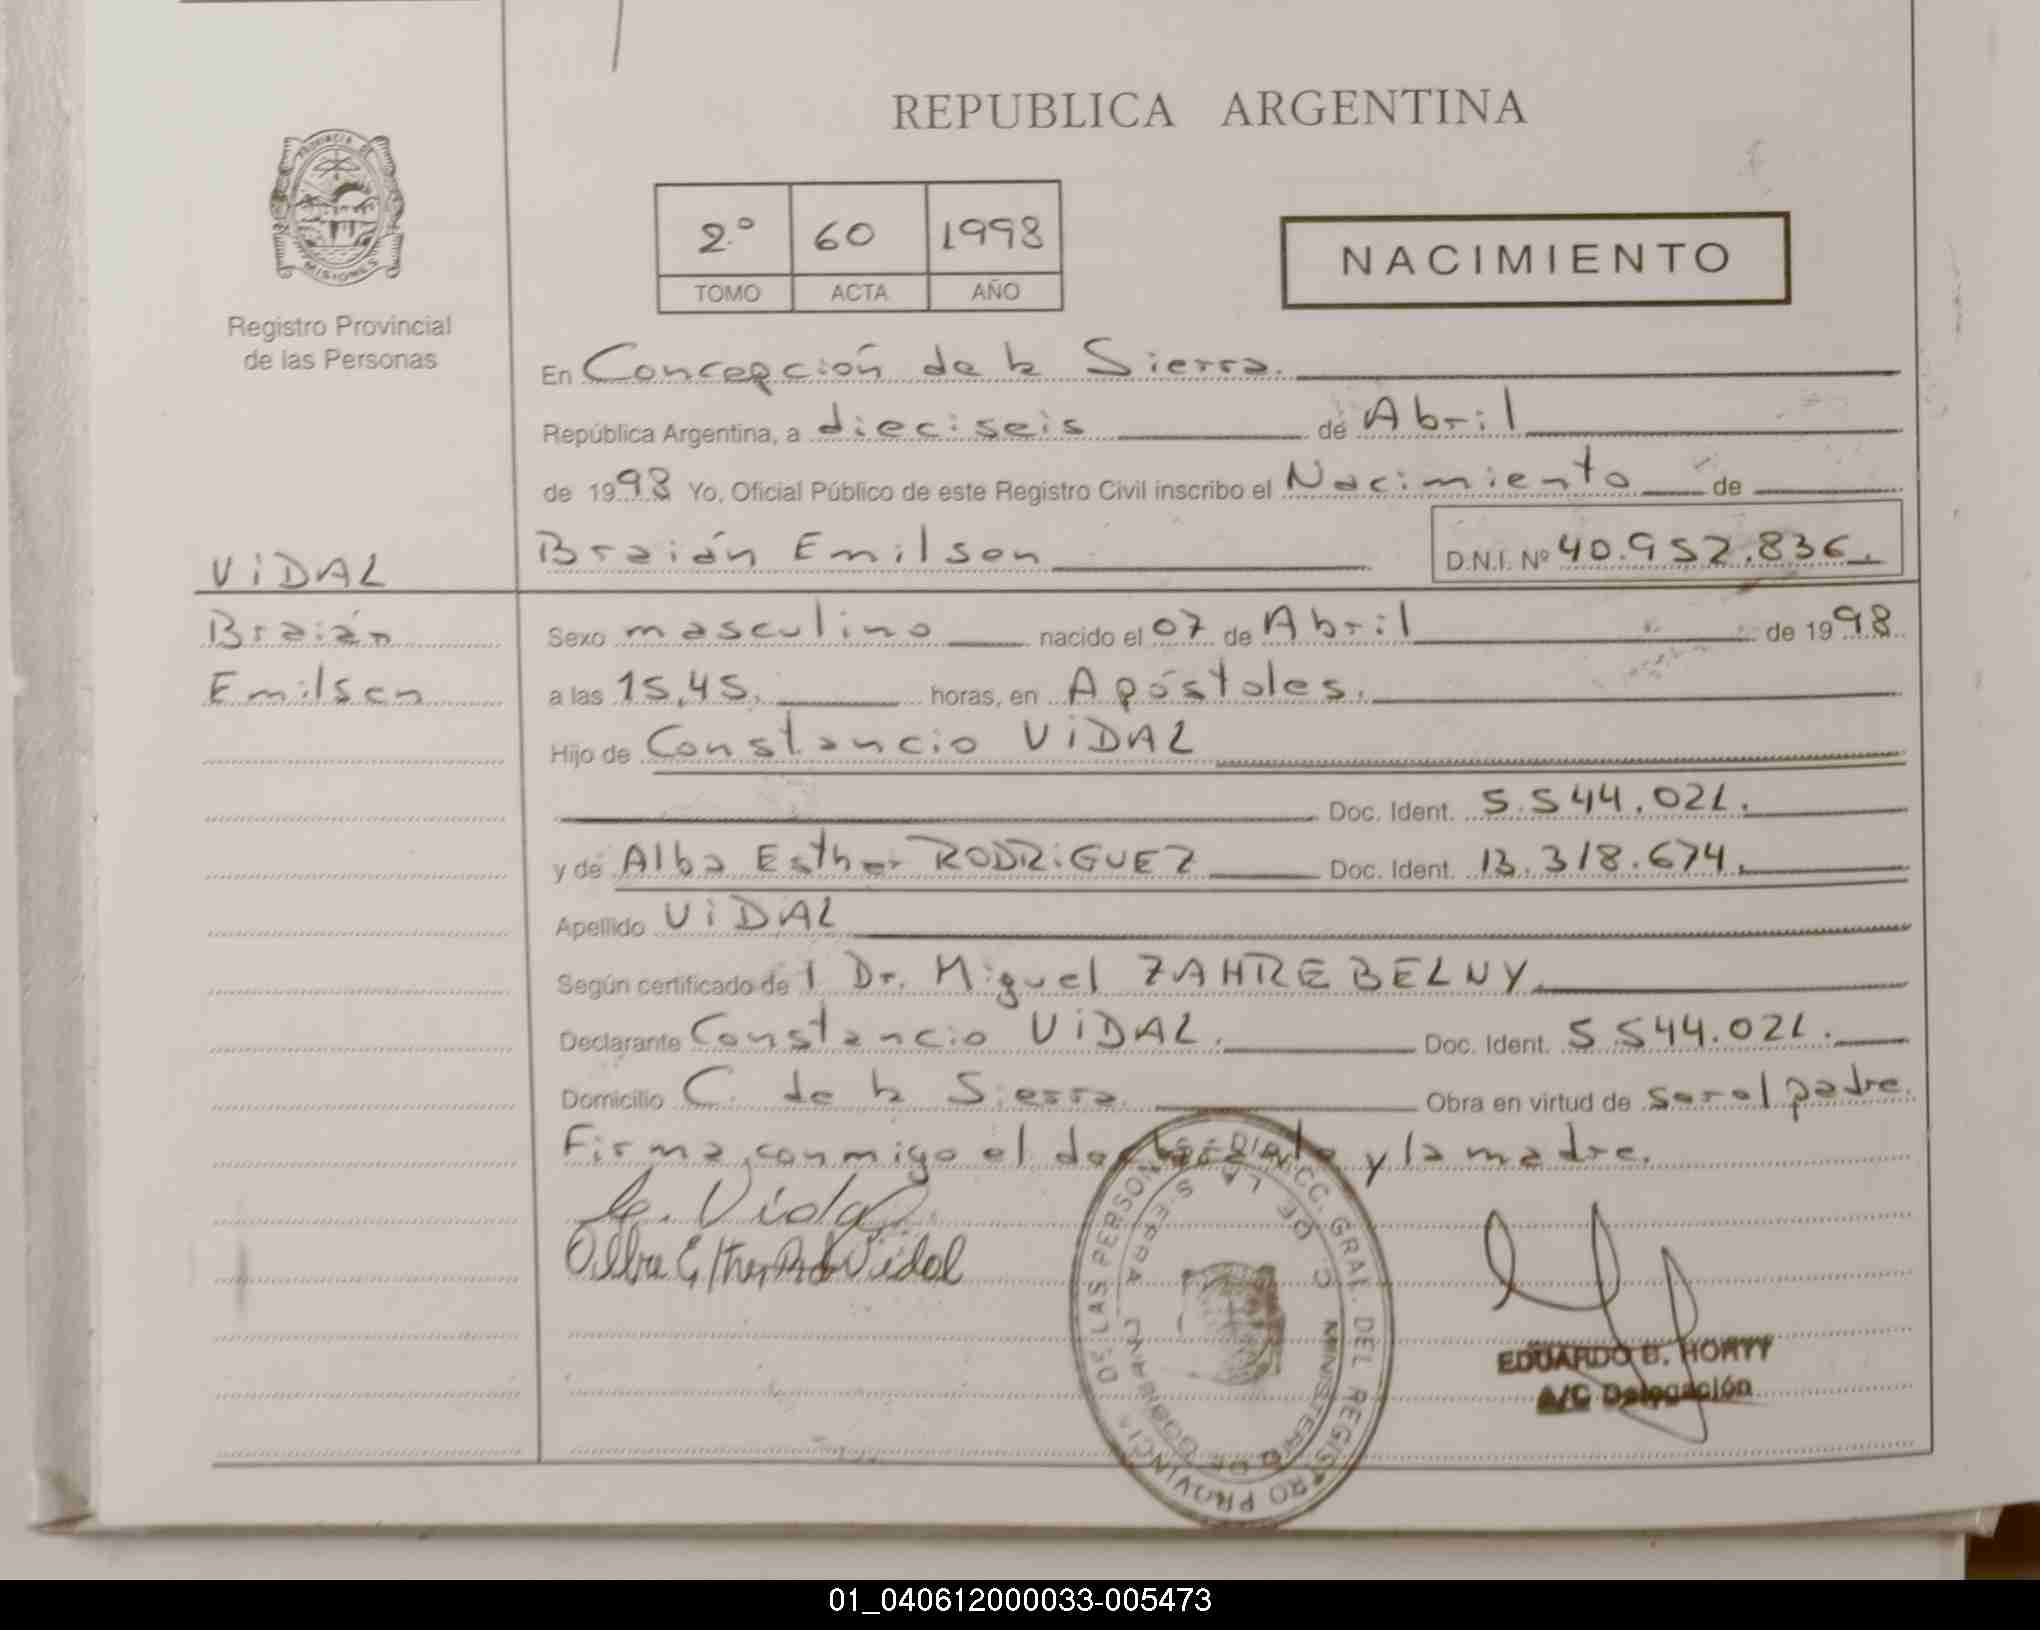 REPUBLICA ARGENTINA
PROVINCIA DE
MISIONES
Registro Provincial
de las Personas
2º 60 1998
TOMO ACTA AÑO
NACIMIENTO
En Concepción de la Sierra.
República Argentina, a dieciseis de Abril
de 1998 Yo, Oficial Público de este Registro Civil inscribo el Nacimiento de
Braián Emilson D.N.I. Nº 40.952.836.
VIDAL
Braián
Emilson
Sexo masculino nacido el 07 de Abril de 1998
a las 15,45. horas, en Apóstoles.
Hijo de Constancio VIDAL
Doc. Ident. 5.544.021.
y de Alba Esther RODRIGUEZ Doc. Ident. 13.318.674.
Apellido VIDAL
Según certificado de l Dr. Miguel ZAHREBELNY
Declarante Constancio VIDAL. Doc. Ident. 5.544.021.
Domicilio C. de la Sierra. Obra en virtud de ser el padre.
Firma conmigo el declarante y la madre.
Vidal
Vidal
DIRECC. GRAL. DEL REGISTRO PROVINCIAL DE LAS PERSONAS
C. DE LA SIERRA
MINISTERIO DE GOBIERNO
EDUARDO B. HORTT
A/C Delegación
01_040612000033-005473